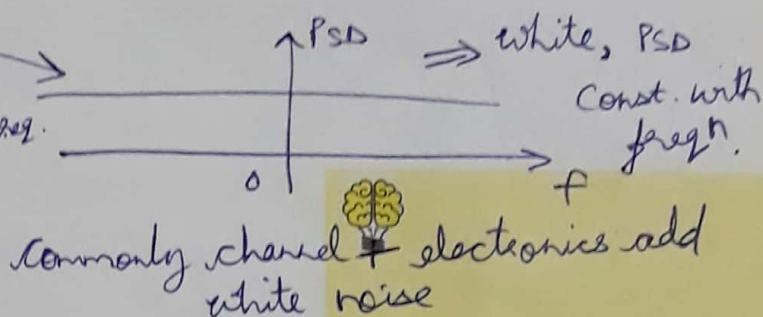 PSD
⇒ white, PSD
const. with
freqn.
req.
0
f
commonly channel + electronics add
white noise